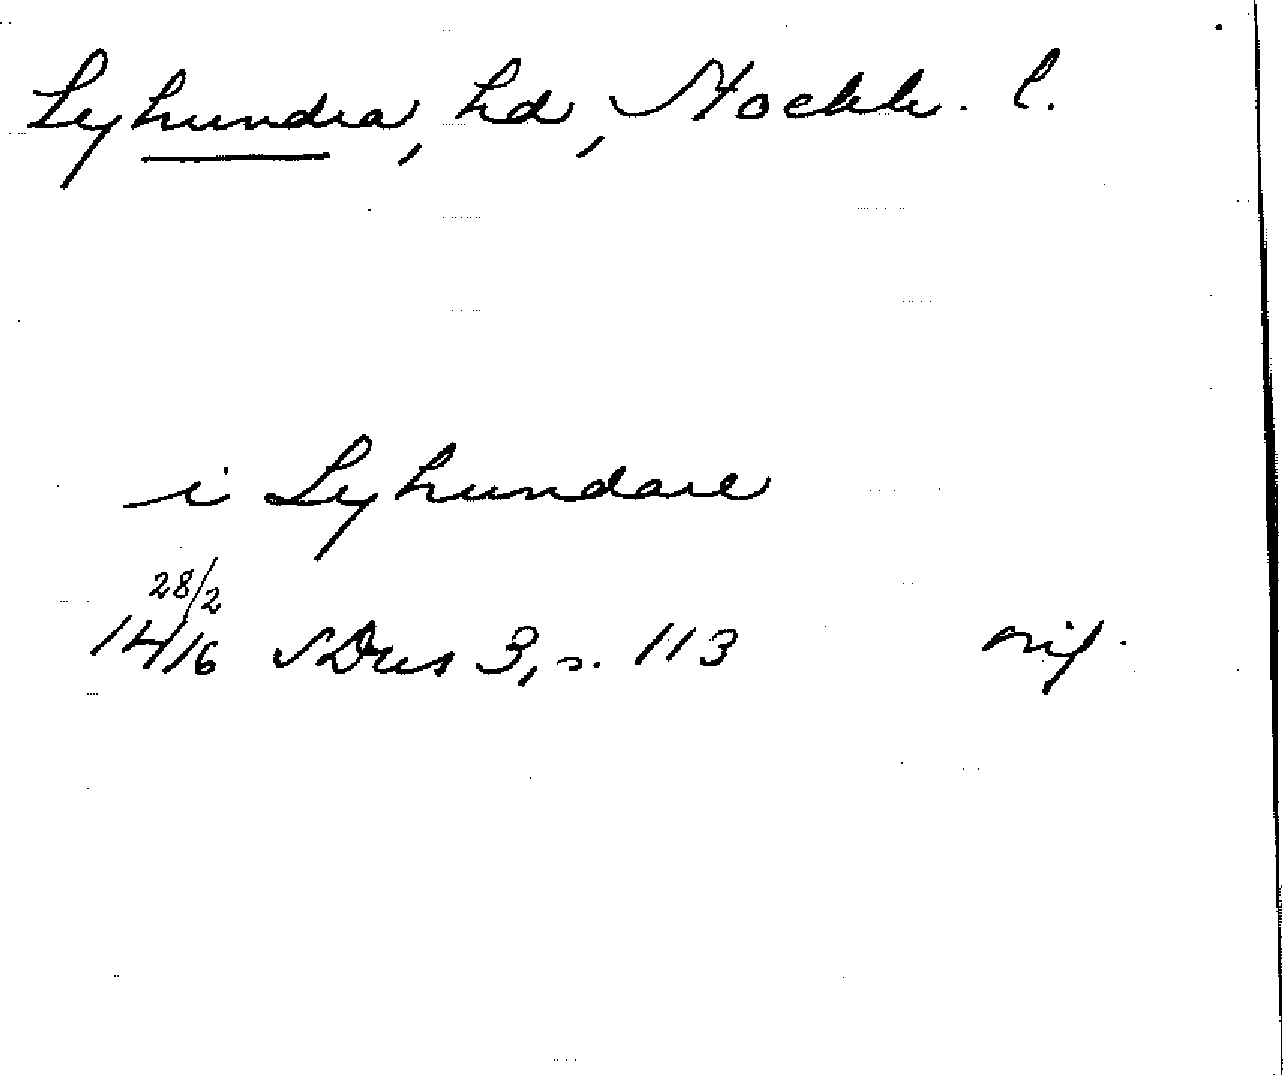 Lyhundra, hd, Stockh. l.
i Lyhundare
28/2
1416 SDns 3, s. 113 orig.